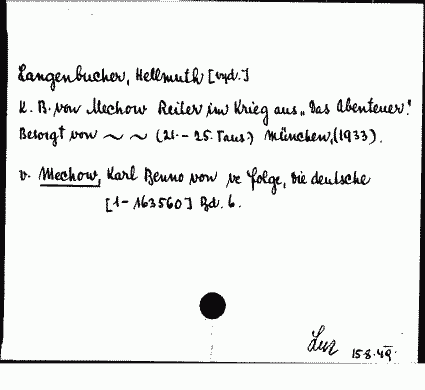 Langenbucher, Hellmuth [vyd.]
K. B. von Mechow Reiter im Krieg aus „Das Abenteuer."
Besorgt von ~ ~ (21. - 25. Taus.) München, (1933).
v. Mechow, Karl Benno von ve folge, Die deutsche
[1-163560] Bd. 6.
15.8.49